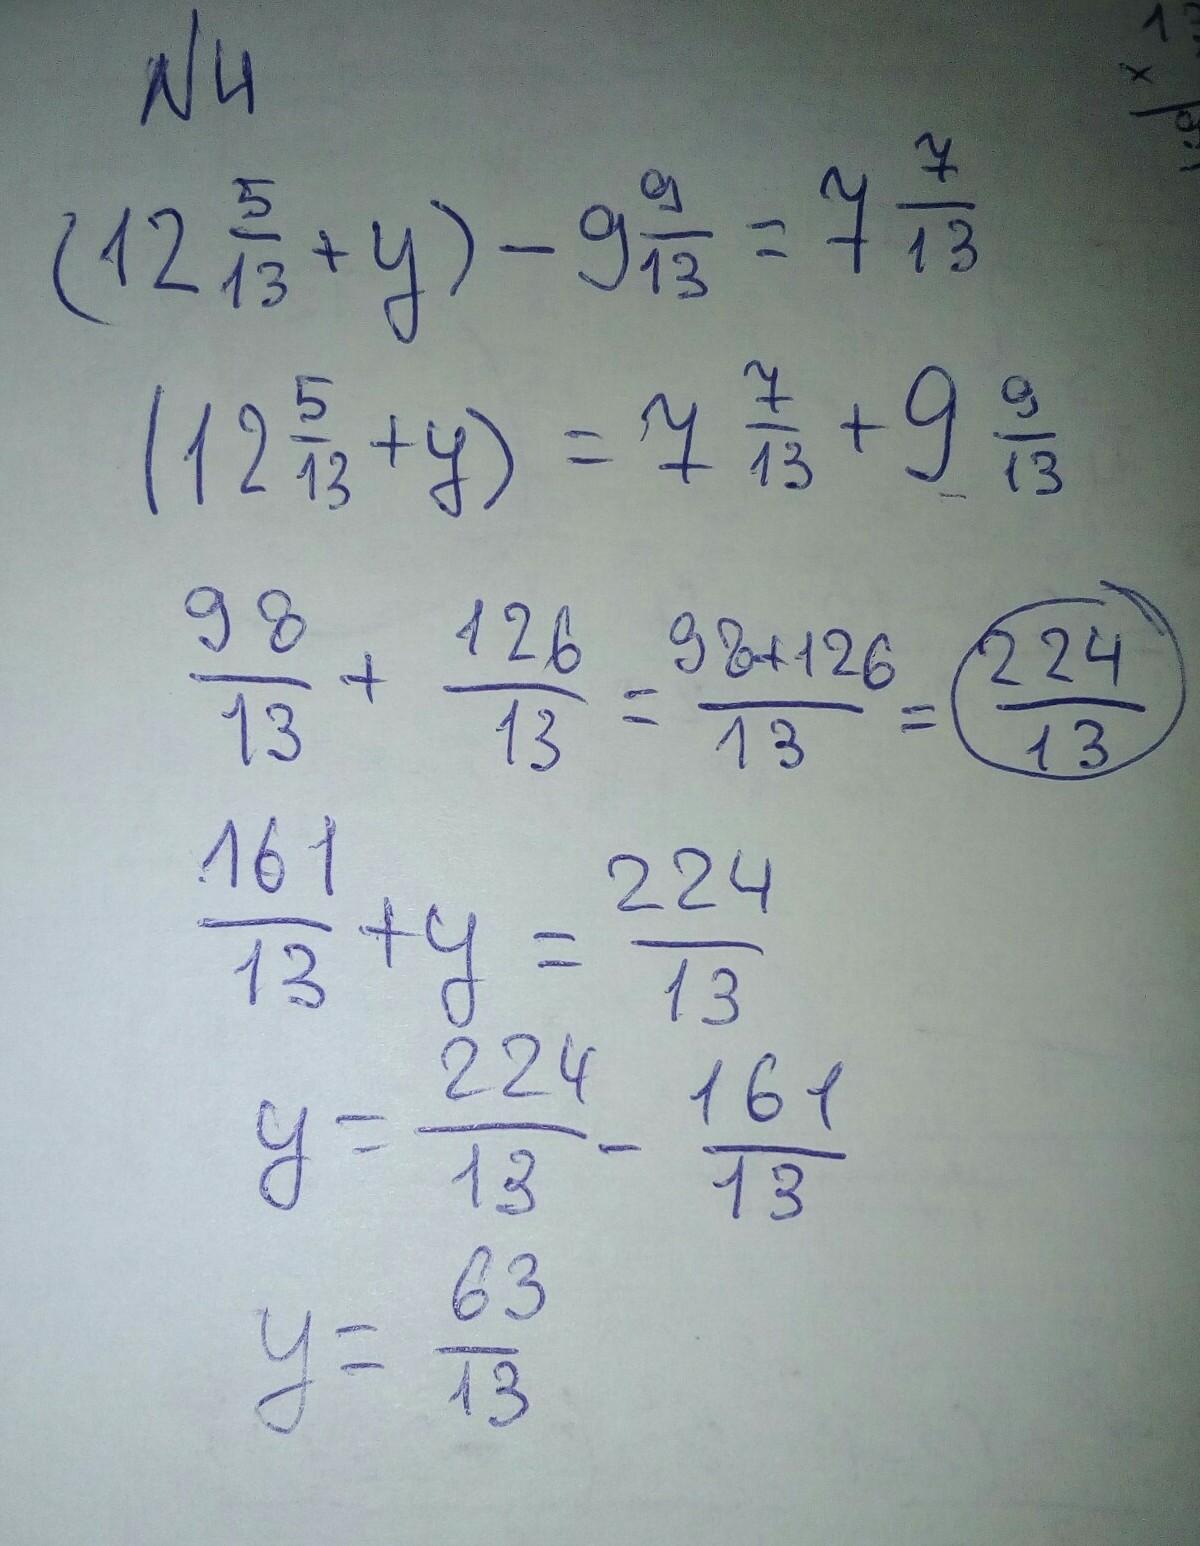 N4
(12 5/13 + y) - 9 9/13 = 7 7/13
(12 5/13 + y) = 7 7/13 + 9 9/13
98/13 + 126/13 = 98+126/13 = 224/13
161/13 + y = 224/13
y = 224/13 - 161/13
y = 63/13